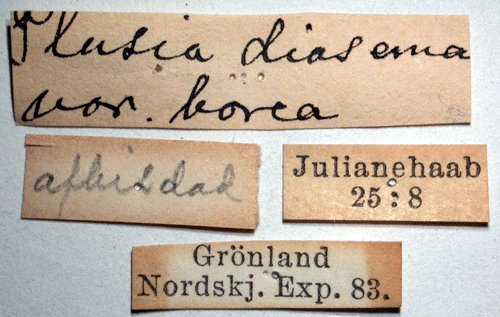 Plusia diasema
var. borea
afbildad
Julianehaab
25:8
Grönland
Nordskj. Exp. 83.